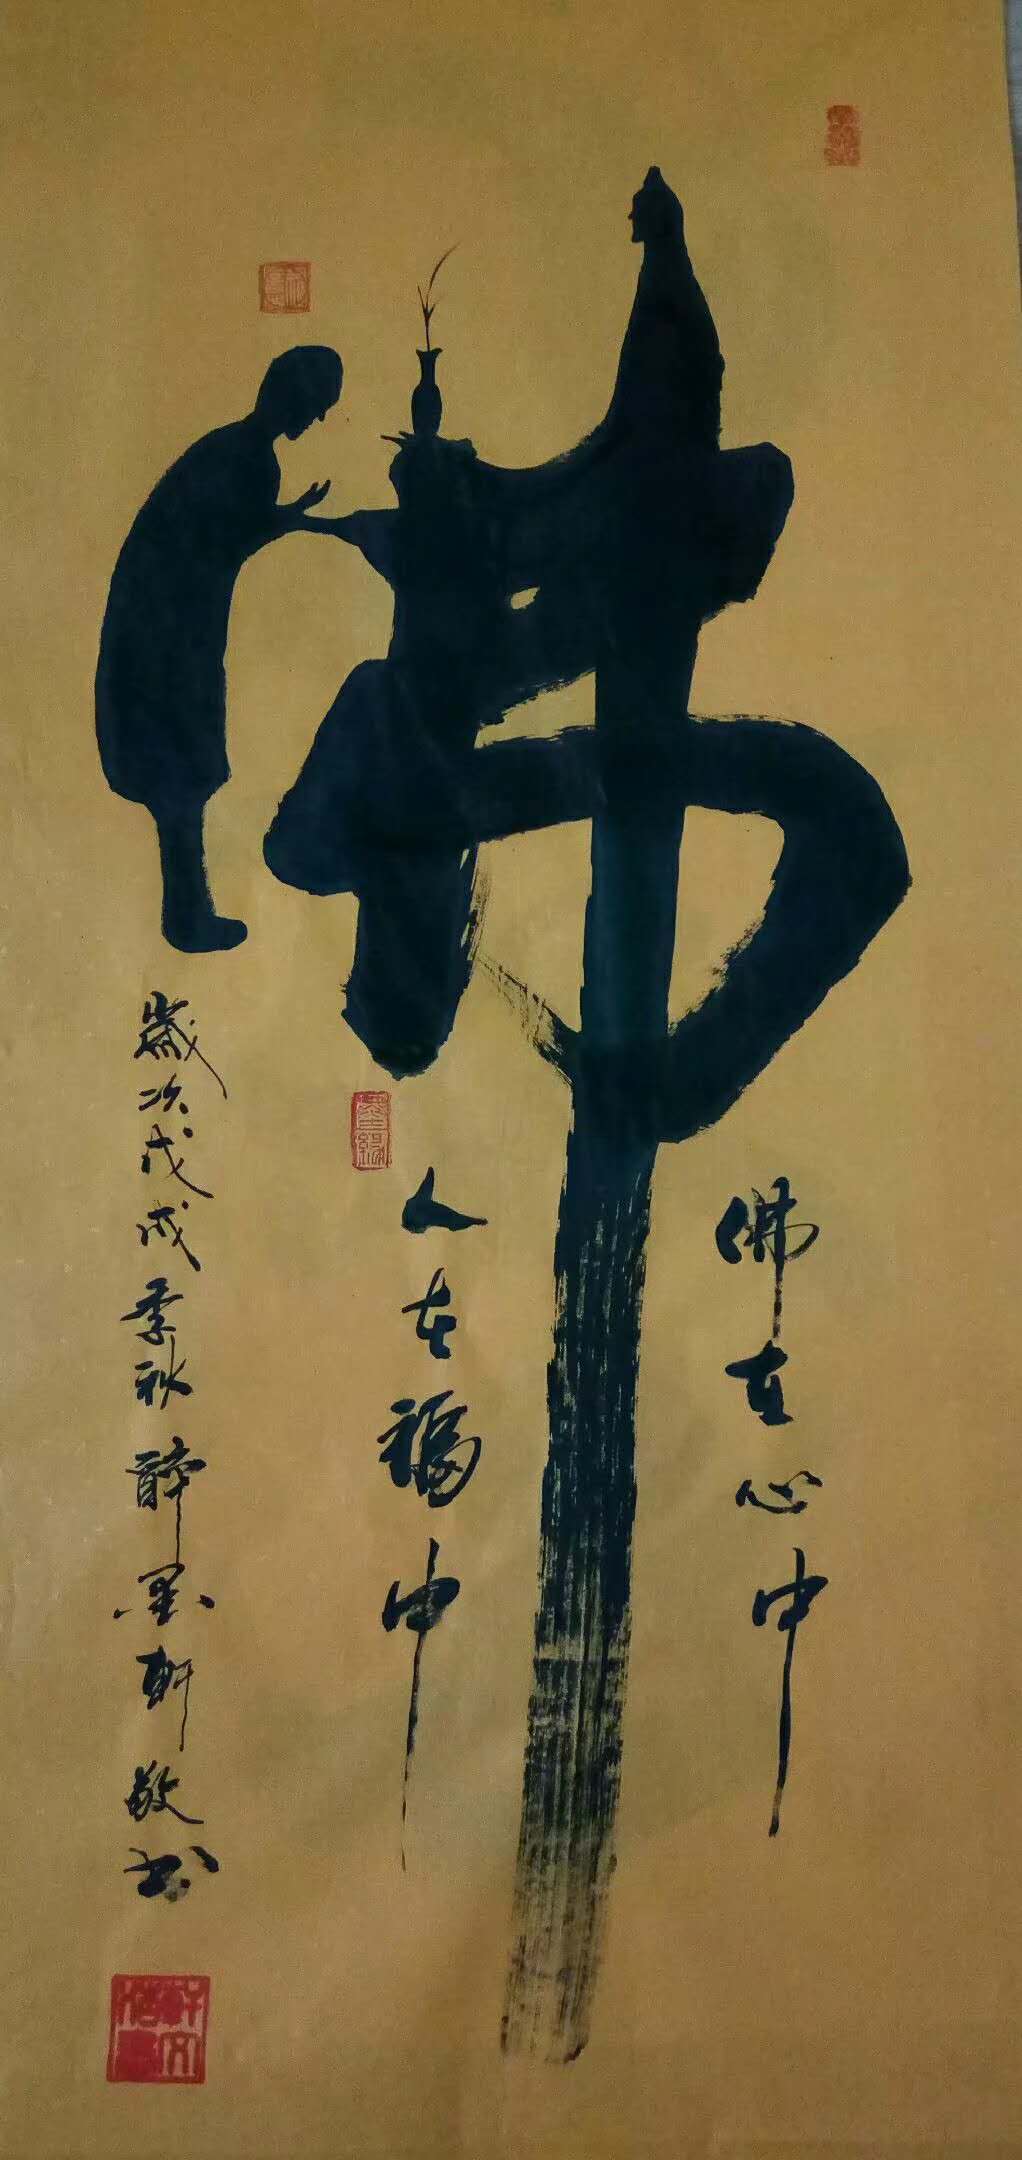 佛
佛在心中
人在福中
歲次戊戌季秋醉墨軒敬書